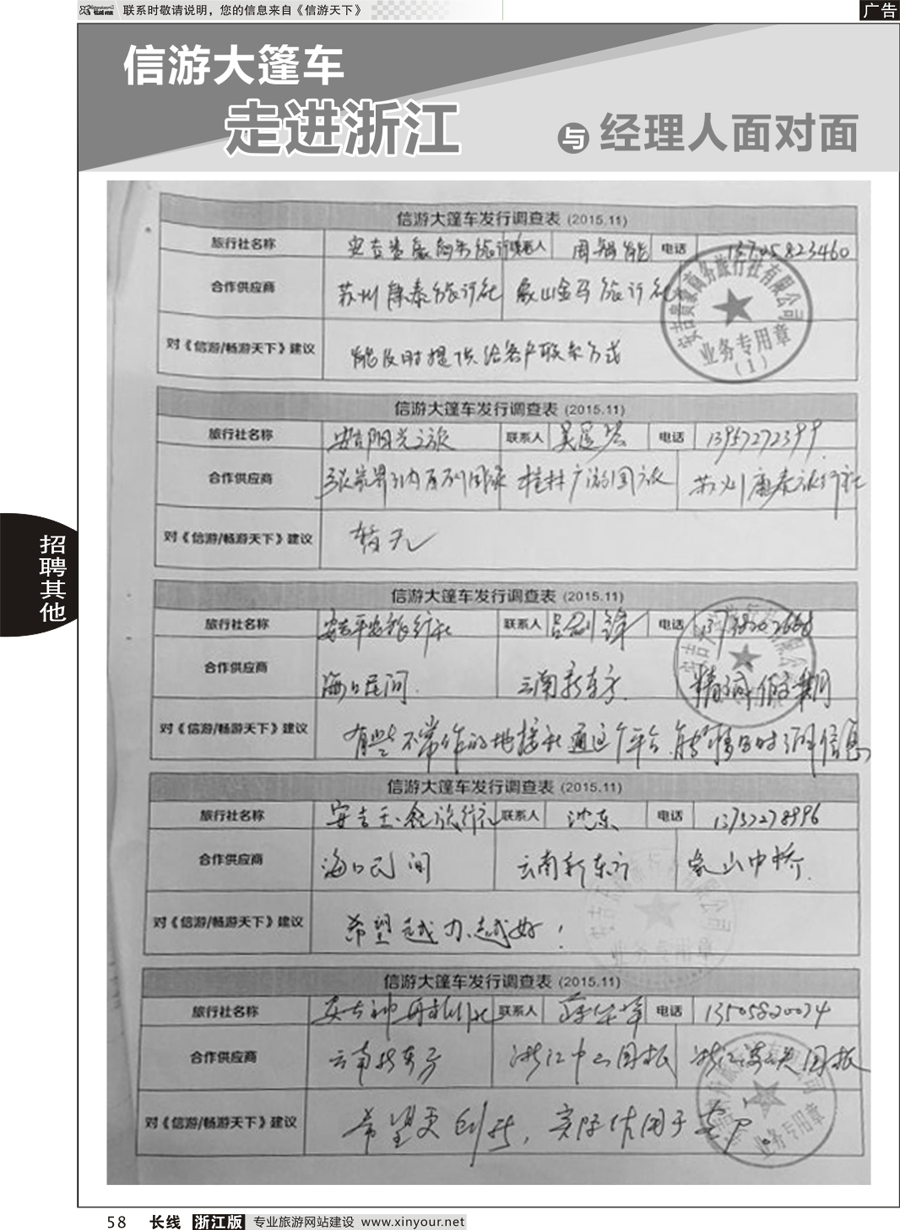 联系时敬请说明，您的信息来自《信游天下》
广告
信游大篷车
走进浙江 与 经理人面对面
信游大篷车发行调查表 (2015.11)
旅行社名称 安吉贵豪商务旅行社 联系人 周 能 电话
合作供应商 苏州康泰旅行社 象山金马旅行社
安吉贵豪商务旅行社有限公司
业务专用章
(1)
对《信游/畅游天下》建议 能及时提供给客户联系方式
信游大篷车发行调查表 (2015.11)
旅行社名称 安吉阳光之旅 联系人 吴 电话 13957272399
合作供应商 张家界 国旅 桂林广游国旅 苏州康泰旅行社
对《信游/畅游天下》建议 暂无
信游大篷车发行调查表 (2015.11)
旅行社名称 安吉平安旅行社 联系人 锋 电话
合作供应商 海口民间 云南新东方 精诚假期
对《信游/畅游天下》建议 有些不常作的地接社通过这个平台
信游大篷车发行调查表 (2015.11)
旅行社名称 安吉 旅行社 联系人 沈东 电话 13757278996
合作供应商 海口民间 云南新东方 象山中桥
业务专用章
对《信游/畅游天下》建议 希望越办越好！
信游大篷车发行调查表 (2015.11)
旅行社名称 安吉神舟旅行社 联系人 薛 电话 13505820074
合作供应商 云南新东方 浙江中山国旅 浙江 国旅
对《信游/畅游天下》建议 希望更创新，实际作用于客户。
业务专用章
招聘其他
58 长线 浙江版 专业旅游网站建设 www.xinyour.net